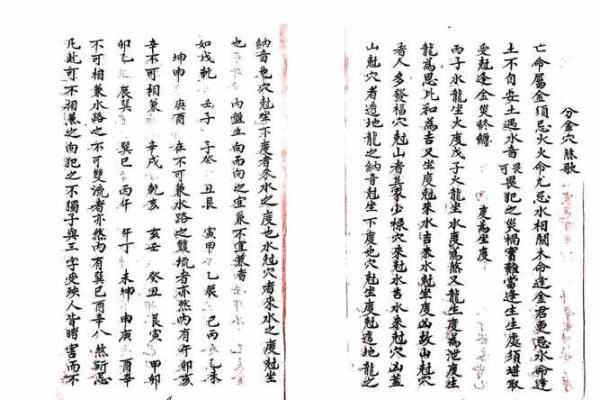 分金穴煞歌
亡命屬金須忌火火命尤忌水相關木命逢金君更忌水命逢
土不自安土遇水音可畏畏犯之災禍實難當逢生生處須堪取
受尅逢金災終纏
度為坐度
丙子水龍坐火度戊子火龍坐水度為煞又龍生度為泄度生
龍為恩比和為吉又坐度尅來水吉來水尅坐度凶故山尅穴
者人多發福穴尅山者其家少祿穴來尅水吉水來尅穴凶蓋
山尅穴者透地龍之納音尅坐下度也穴尅山者坐度尅透地龍之
納音也穴尅坐下度者來水之度也水尅穴者來水之度尅坐
也 內盤立向而向之宜兼不宜兼者
如戌乾 壬子 子癸 丑艮 寅甲 乙辰 巳丙 丁未
坤申 庚酉 在不可兼水路之雙流者亦然內有午卯亥
辛不可相兼 辛戌 乾亥 亥壬 癸丑 艮寅 甲卯
卯乙 辰巽 巽巳 丙午 午丁 未坤 申庚 酉辛
不可相兼水路之不可雙流者亦然內有巽巳酉辛八煞所忌
凡此可不相兼之向犯之不獨子與三字受殃人皆時害而不